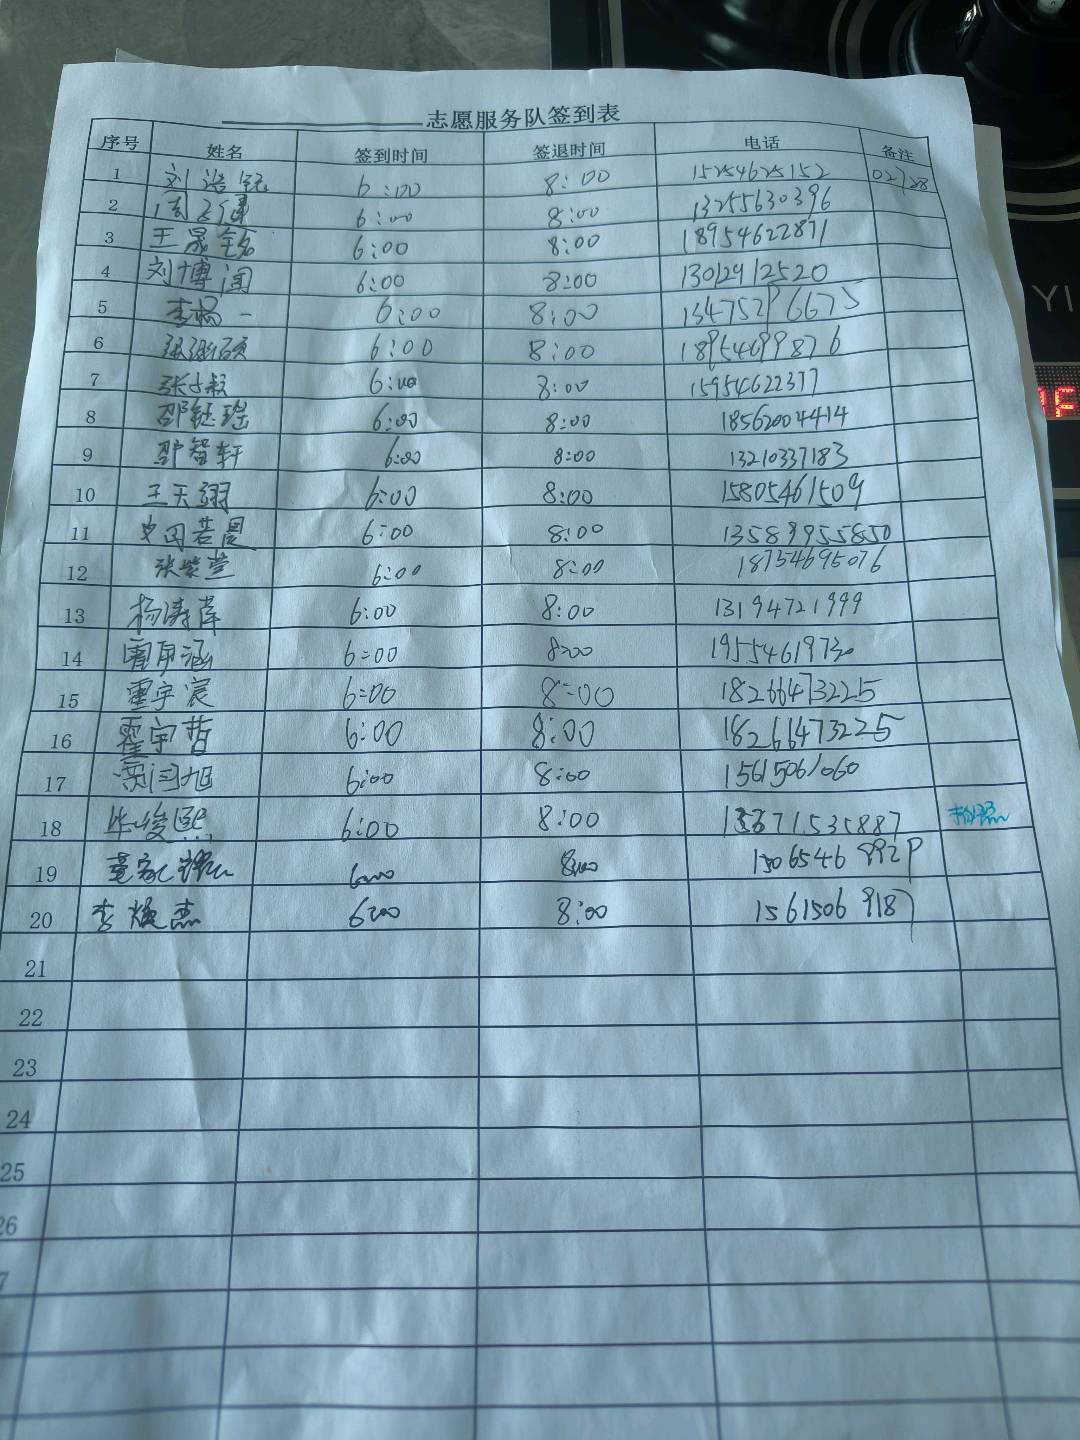 志愿服务队签到表
序号 姓名 签到时间 签退时间 电话 备注
1 刘浩 6:00 8:00 15254625152 02728
2 周 6:00 8:00 13255630396
3 王晟铭 6:00 8:00 18954622871
4 刘博闻 6:00 8:00 13012912520
5 李杨一 6:00 8:00 13475296675
6 6:00 8:00 18954699876
7 张 6:00 8:00 15954622377
8 邵钰瑶 6:00 8:00 18562004414
9 邵智轩 6:00 8:00 13210337183
10 王天翊 6:00 8:00 15805461509
11 若 6:00 8:00 13589955850
12 张紫萱 6:00 8:00 18754695076
13 杨涛 6:00 8:00 13194721999
14 涵 6:00 8:00 19554619730
15 霍宇宸 6:00 8:00 18266473225
16 霍宇哲 6:00 8:00 18266473225
17 闫旭 6:00 8:00 15615061060
18 毕峻熙 6:00 8:00 71535887
19 6:00 8:00 15065468929
20 李 杰 6:00 8:00 15615069187
21
22
23
24
25
26
7
YI